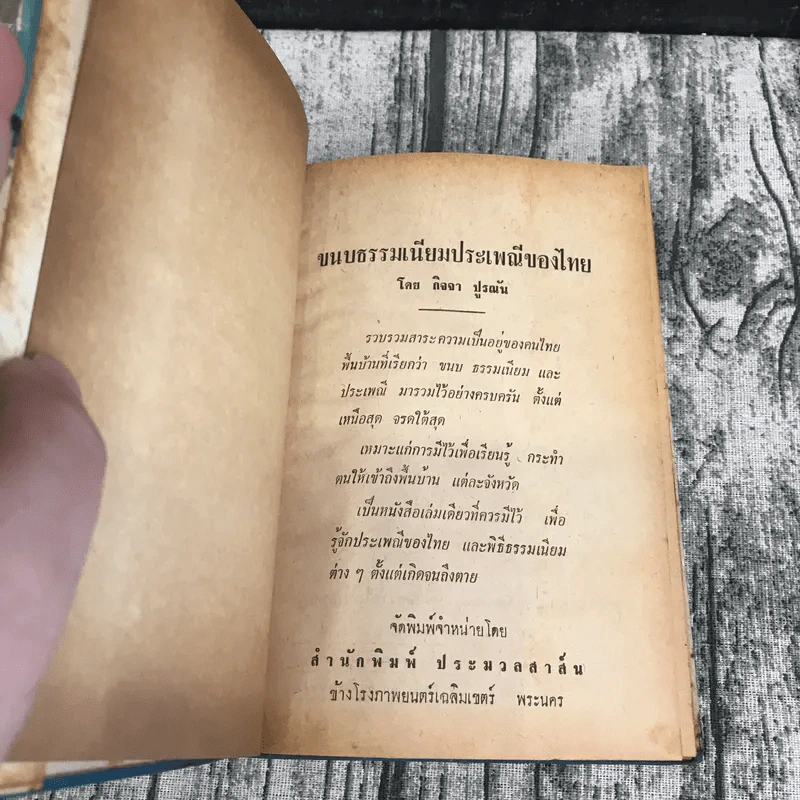 ขนบธรรมเนียมประเพณีของไทย
โดย กิจจา ปูรณัน
รวบรวมสาระความเป็นอยู่ของคนไทย
พื้นบ้านที่เรียกว่า ขนบ ธรรมเนียม และ
ประเพณี มารวมไว้อย่างครบครัน ตั้งแต่
เหนือสุด จรดใต้สุด
เหมาะแก่การมีไว้เพื่อเรียนรู้ กระทำ
ตนให้เข้าถึงพื้นบ้าน แต่ละจังหวัด
เป็นหนังสือเล่มเดียวที่ควรมีไว้ เพื่อ
รู้จักประเพณีของไทย และพิธีธรรมเนียม
ต่าง ๆ ตั้งแต่เกิดจนถึงตาย
จัดพิมพ์จำหน่ายโดย
สำนักพิมพ์ ประมวลสาส์น
ข้างโรงภาพยนตร์เฉลิมเขตร์ พระนคร